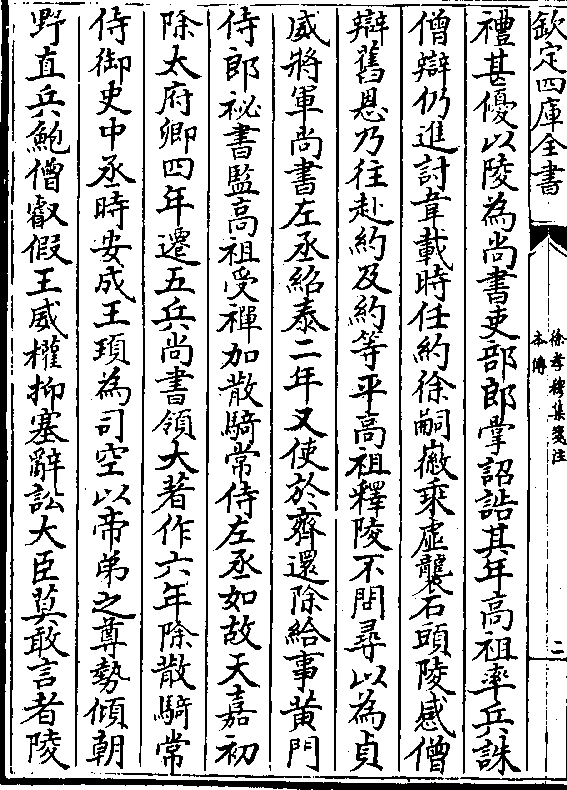 欽定四庫全書
徐孝穆集箋注
本傳
二
禮甚優以陵為尚書吏部郎掌詔誥其年高祖率兵誅
僧辯仍進討韋載時任約徐嗣徽乘虛襲石頭陵感僧
辯舊恩乃往赴約及約等平高祖釋陵不問尋以為貞
威將軍尚書左丞紹泰二年又使於齊還除給事黃門
侍郎祕書監高祖受禪加散騎常侍左丞如故天嘉初
除太府卿四年遷五兵尚書領大著作六年除散騎常
侍御史中丞時安成王頊為司空以帝弟之尊勢傾朝
野直兵鮑僧叡假王威權抑塞辭訟大臣莫敢言者陵